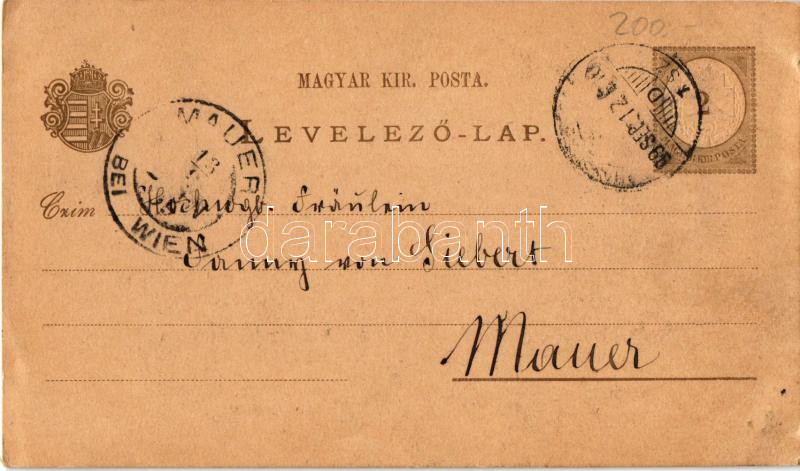 200.-
MAGYAR KIR. POSTA.
LEVELEZŐ-LAP.
99 SEP. 12
MAUER
BEI WIEN
Czim
Hochwgb. Fräulein
Fanny von Siebert
Mauer
darabanth